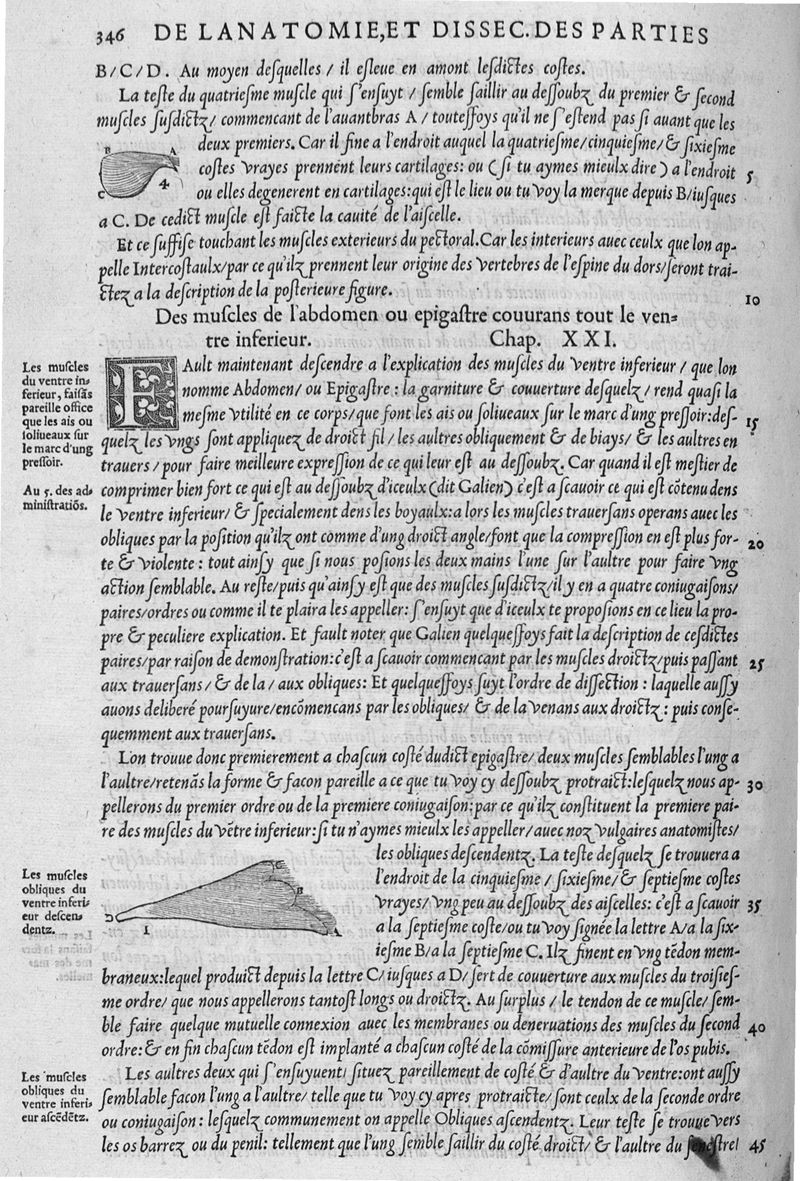 346 DE LANATOMIE, ET DISSEC. DES PARTIES
B/C/D. Au moyen deſquelles / il eſleue en amont leſdictes coſtes.
La teſte du quatrieſme muſcle qui ſ'enſuyt / ſemble ſaillir au deſſoubz du premier & ſecond
muſcles ſuſdictz / commencant de l'auantbras A / touteſſoys qu'il ne ſ'eſtend pas ſi auant que les
deux premiers. Car il fine a l'endroit auquel la quatrieſme/cinquieſme/& ſixieſme
B A
coſtes vrayes prennent leurs cartilages: ou (ſi tu aymes mieulx dire) a l'endroit 5
C 4.
ou elles degenerent en cartilages: qui eſt le lieu ou tu voy la merque depuis B/iuſques
a C. De cedict muſcle eſt faicte la cauité de l'aiſcelle.
Et ce ſuffiſe touchant les muſcles exterieurs du pectoral. Car les interieurs auec ceulx que lon ap-
pelle Intercoſtaulx/par ce qu'ilz prennent leur origine des vertebres de l'eſpine du dors/ſeront trai-
ctez a la deſcription de la poſterieure figure. 10
Des muſcles de l'abdomen ou epigaſtre couurans tout le ven=
tre inferieur. Chap. XXI.
Les muſcles
du ventre in=
ferieur, faiſãs
pareille office
que les ais ou
ſoliueaux ſur
le marc d'ung
preſſoir.
FAult maintenant deſcendre a l'explication des muſcles du ventre inferieur / que lon
nomme Abdomen/ ou Epigaſtre : la garniture & couuerture deſquelz / rend quaſi la
meſme vtilité en ce corps/ que font les ais ou ſoliueaux ſur le marc d'ung preſſoir: deſ- 15
quelz les vngs ſont appliquez de droict fil / les aultres obliquement & de biays/ & les aultres en
trauers / pour faire meilleure expreſſion de ce qui leur eſt au deſſoubz. Car quand il eſt meſtier de
Au 5. des ad=
miniſtratiõs.
comprimer bien fort ce qui eſt au deſſoubz d'iceulx (dit Galien) c'eſt a ſcauoir ce qui eſt cõtenu dens
le ventre inferieur/ & ſpecialement dens les boyaulx: a lors les muſcles trauerſans operans auec les
obliques par la poſition qu'ilz ont comme d'ung droict angle/font que la compreſſion en eſt plus for- 20
te & violente : tout ainſy que ſi nous poſions les deux mains l'une ſur l'aultre pour faire vng
action ſemblable. Au reſte/ puis qu'ainſy eſt que des muſcles ſuſdictz/ il y en a quatre coniugaiſons/
paires/ordres ou comme il te plaira les appeller: ſ'enſuyt que d'iceulx te propoſions en ce lieu la pro-
pre & peculiere explication. Et fault noter que Galien quelqueſſoys fait la deſcription de ceſdictes
paires/par raiſon de demonſtration: c'eſt a ſcauoir commencant par les muſcles droictz/puis paſſant 25
aux trauerſans/ & de la / aux obliques: Et quelqueſſoys ſuyt l'ordre de diſſection : laquelle auſſy
auons deliberé pourſuyure/encõmencans par les obliques/ & de la venans aux droictz : puis conſe-
quemment aux trauerſans.
L'on trouue donc premierement a chaſcun coſté dudict epigaſtre/ deux muſcles ſemblables l'ung a
l'aultre/retenãs la forme & facon pareille a ce que tu voy cy deſſoubz protraict: leſquelz nous ap- 30
pellerons du premier ordre ou de la premiere coniugaiſon: par ce qu'ilz conſtituent la premiere pai-
re des muſcles du vẽtre inferieur: ſi tu n'aymes mieulx les appeller/ auec noz vulgaires anatomiſtes/
les obliques deſcendentz. La teſte deſquelz ſe trouuera a
Les muſcles
obliques du
ventre inferi=
eur deſcen=
dentz.
C
B
D 1 A
l'endroit de la cinquieſme / ſixieſme/ & ſeptieſme coſtes
vrayes/ vng peu au deſſoubz des aiſcelles: c'eſt a ſcauoir 35
a la ſeptieſme coſte/ou tu voy ſignée la lettre A/a la ſix-
ieſme B/ a la ſeptieſme C. Ilz finent en vng tẽdon mem-
braneux: lequel produict depuis la lettre C/ iuſques a D/ ſert de couuerture aux muſcles du troiſieſ-
me ordre/ que nous appellerons tantoſt longs ou droictz. Au ſurplus / le tendon de ce muſcle/ ſem-
ble faire quelque mutuelle connexion auec les membranes ou deneruations des muſcles du ſecond 40
ordre: & en fin chaſcun tẽdon eſt implanté a chaſcun coſté de la cõmiſſure anterieure de l'os pubis.
Les muſcles
obliques du
ventre inferi=
eur aſcẽdẽtz.
Les aultres deux qui ſ'enſuyuent/ ſituez pareillement de coſté & d'aultre du ventre: ont auſſy
ſemblable facon l'ung a l'aultre/ telle que tu voy cy apres protraicte/ ſont ceulx de la ſeconde ordre
ou coniugaiſon: leſquelz communement on appelle Obliques aſcendentz. Leur teſte ſe trouue vers
les os barrez ou du penil: tellement que l'ung ſemble ſaillir du coſté droict/ & l'aultre du ſeneſtre/ 45